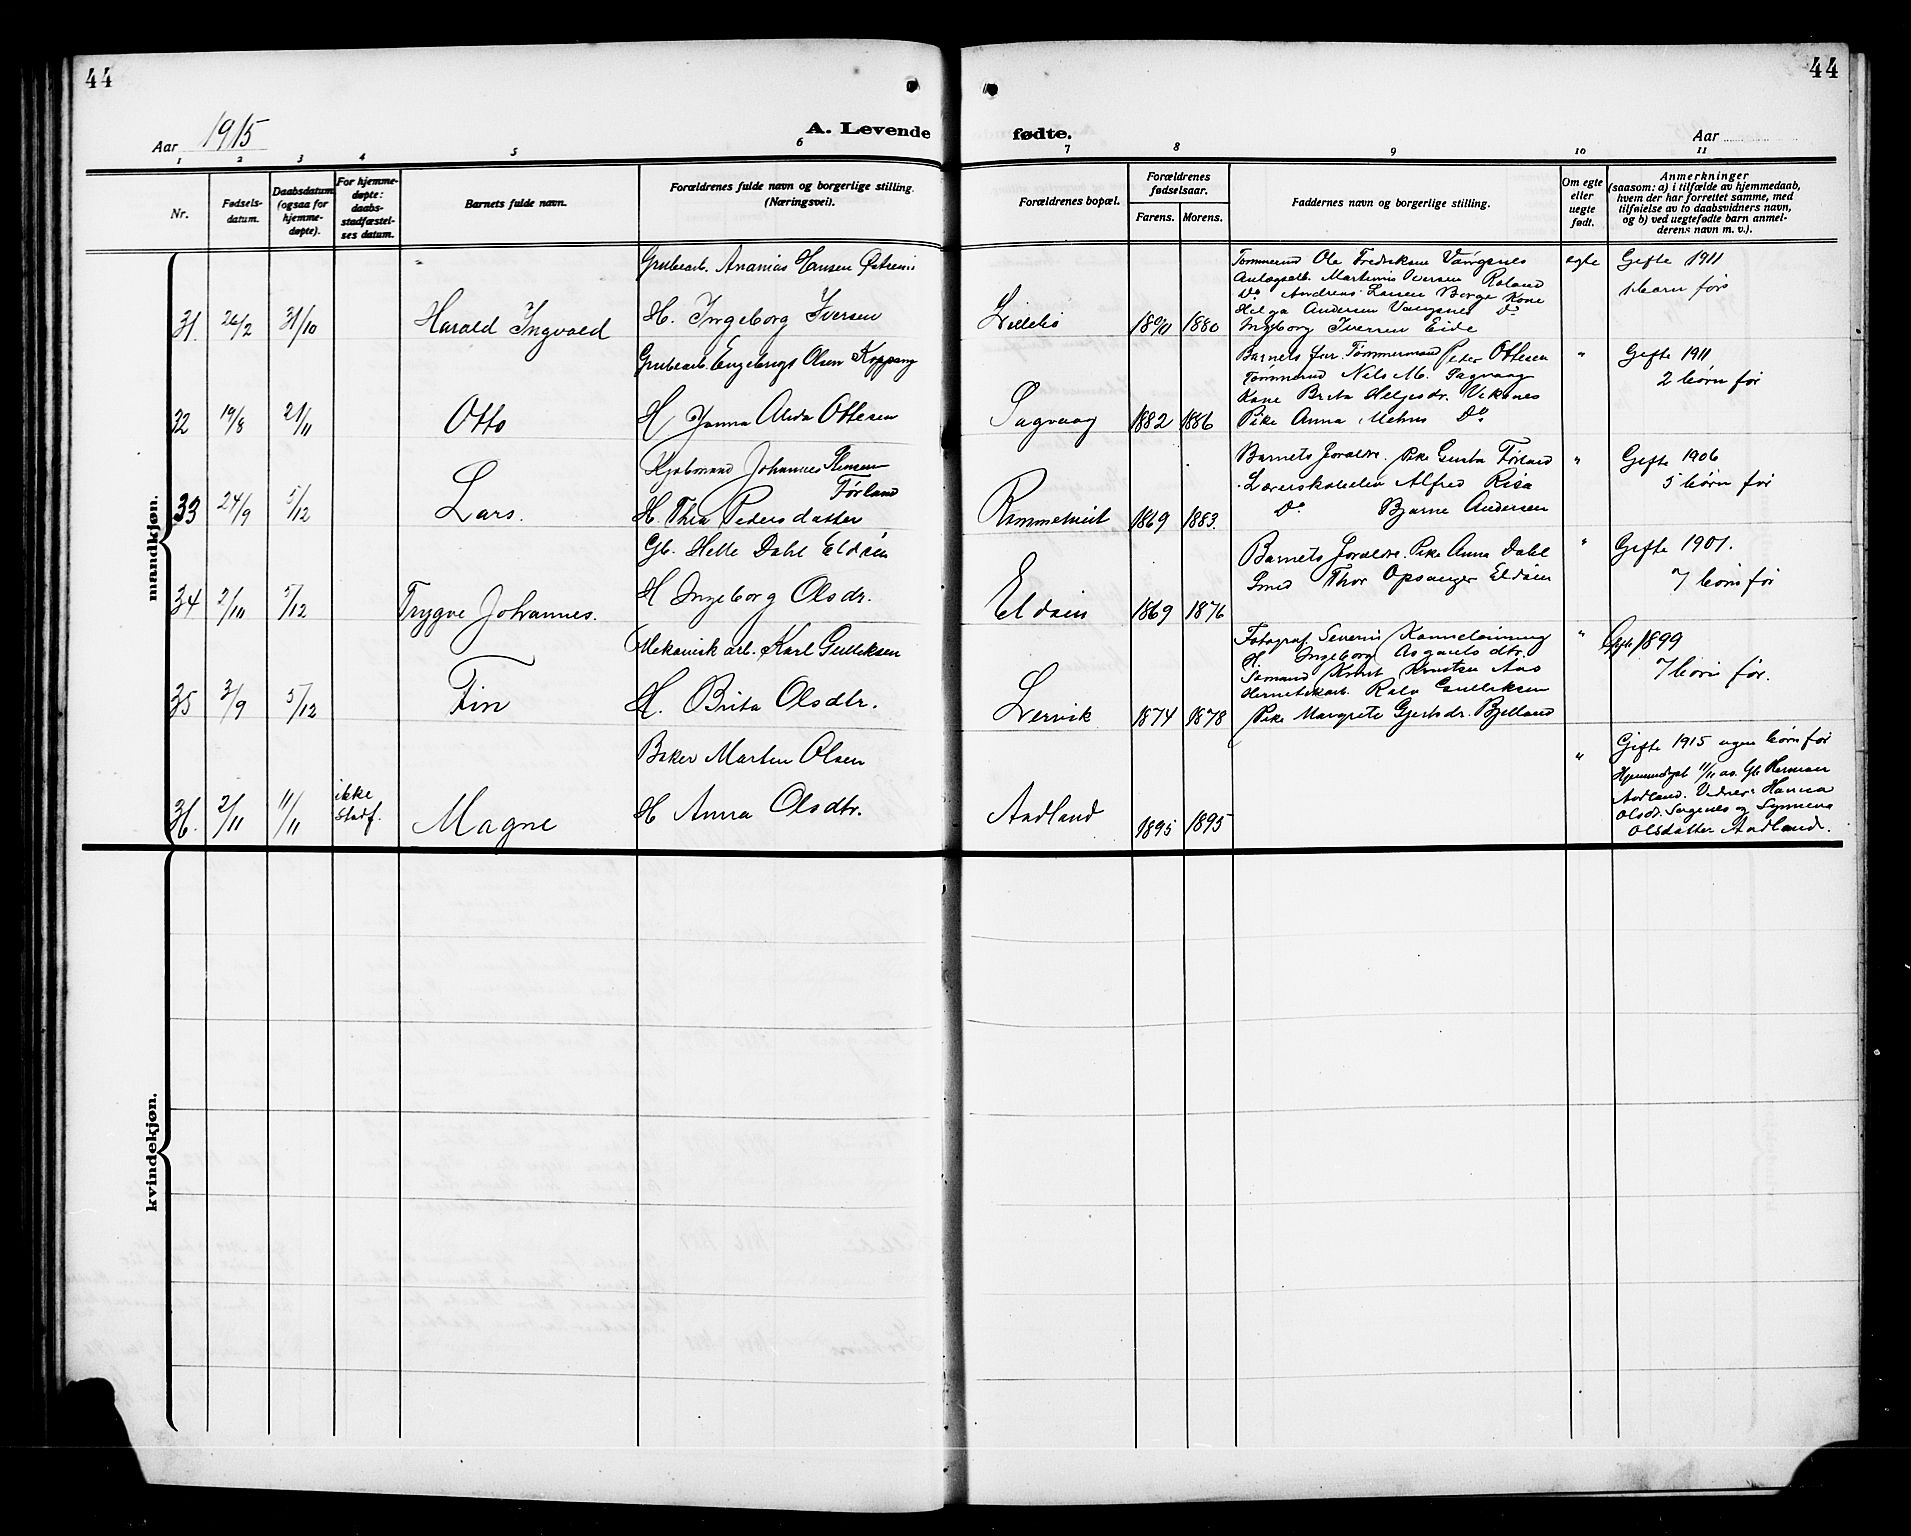 44
44
Aar 1915
A. Levende
fødte.
Aar
1 2 3 4 5 6
7 8 9 10 11
Nr.
Fødsels-
datum.
Daabsdatum
(ogsaa for
hjemme-
døpte).
For hjemme-
døpte:
daabs-
stadfæstel-
ses datum.
Barnets fulde navn.
Forældrenes fulde navn og borgerlige stilling.
(Næringsvei).
Forældrenes bopæl.
Forældrenes
fødselsaar.
Farens. Morens.
Faddernes navn og borgerlige stilling.
Om egte
eller
uegte
født.
Anmerkninger
(saasom: a) i tilfælde av hjemmedaab,
hvem der har forrettet samme, med
tilføielse av to daabsvidners navn,
og b) ved uegtefødte barn anmel-
derens navn m. v.).
mandkjøn.
31. 26/2 31/10 Harald Ingvald
Grubearb. Ananias Hansen
H. Ingeborg Iversen
1880
Tømmermd Ole Fredriksen Vangsnes
Anlagsarb. Martinius Iversen Roland
Do Andreas Larsen Borge Kone
Helga Andersen Vangsnes Do
Ingeborg Iversen Eide
egte
Gifte 1911
1 barn før
32 19/8 21/11 Otto
Grubearb. Engebrigt Olsen Koppang
H Janna Alida Ottesen
Sagvaag 1882 1886
Barnets far. Tømmermand Peter Ottesen
Tømmermd Nils M. Sagvaag
Kone Brita Heljesdr. Vikanes
Pike Anna Mehus Do
"
Gifte 1911
2 børn før
33 24/9 5/12 Lars.
Johannes Stensen
Førland
H. Thea Pedersdatter
1869 1883.
Barnets foraldre. Pike Gusta Førland
Lærerskoleelev Alfred Risa
Do Bjarne Andersen
"
Gifte 1906
5 børn før
34 2/10 5/12 Trygve Johannes.
Gb. Helle Dahl Eldøin
H Ingeborg Olsdr.
Eldøin 1869 1876
Barnets foraldre. Pike Anna Dahl
Smed Thor Opsanger Eldøin
"
Gifte 1901.
7 børn før
35 3/9 5/12 Fin
Mekanisk arb. Karl Gulliksen
H. Brita Olsdtr.
Lervik 1874 1878
Fotograf Severin Kannelønning
H. Ingeborg Asgauts dtr.
Sømand Knut Knutsen Aas
Rolv Gulliksen
Pike Margrete Gjertsdr. Bjelland
"
Gifte 1899
7 børn før.
36. 2/11 11/11 ikke
stadf.
Magne
Baker Martin Olsen
H Anna Olsdtr.
Aadland 1895 1895
"
Gifte 1915 ingen børn før
Hjemmedøpt 11/11 av Gb. Herman
Aadland. Vidner: Hanna
Olsdr. Sørgenes og Synneva
Olsdatter Aadland.
kvindekjøn.